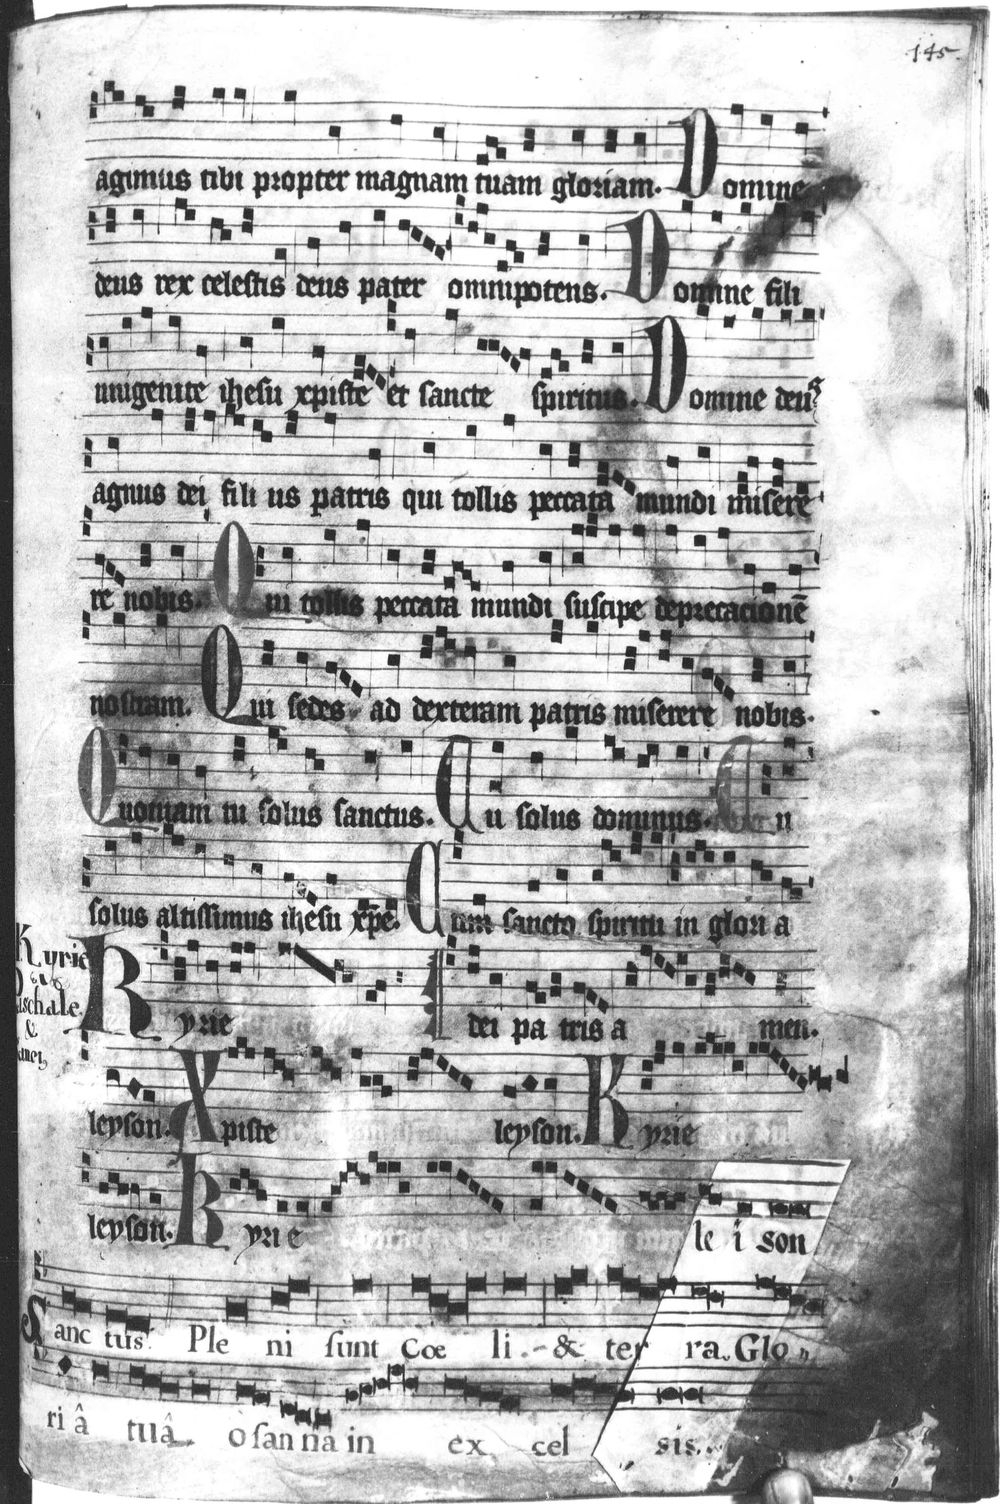 145.
agimus tibi propter magnam tuam gloriam. Domine
deus rex celestis deus pater omnipotens. Domine fili
unigenite ihesu xpiste et sancte spiritus. Domine deus
agnus dei fili us patris qui tollis peccata mundi misere
re nobis. Qui tollis peccata mundi suscipe deprecacionē
nostram. Qui sedes ad dexteram patris miserere nobis.
Quoniam tu solus sanctus. Tu solus dominus. Tu
solus altissimus ihesu xp̄e. Cum sancto spiritu in glori a
Kyrie
Kyrie dei pa tris a men.
&
leyson. Xpiste leyson. Kyrie
leyson. Kyrie le i son
Sanc tus. Ple ni sunt Cœ li.- & ter ra. Glo
ri â tuâ ò san na in ex cel sis..